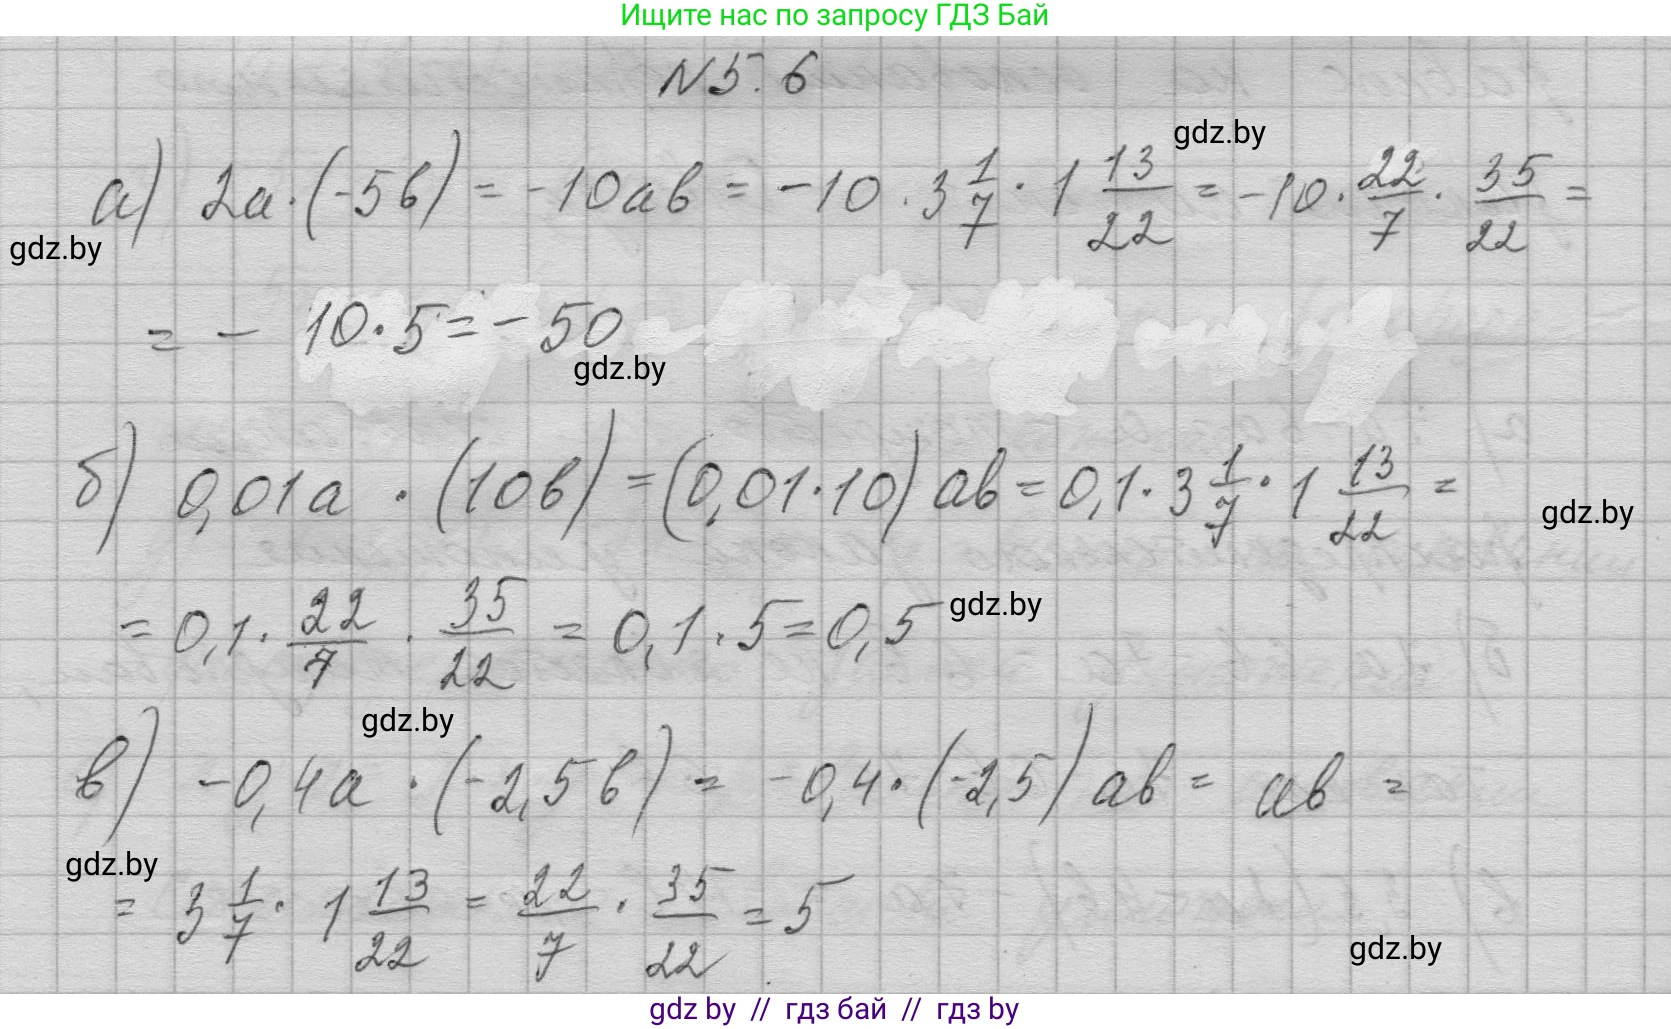 Ищите нас по запросу ГДЗ Бай
N 5.6
gdz.by
а) 2a·(-5b) = -10ab = -10·3 1/7 · 1 13/22 = -10· 22/7 · 35/22 =
gdz.by
= - 10·5 = -50
gdz.by
б) 0,01a · (10b) = (0,01·10) ab = 0,1·3 1/7 · 1 13/22 =
gdz.by
= 0,1· 22/7 · 35/22 = 0,1·5 = 0,5
gdz.by
gdz.by
в) -0,4a · (-2,5b) = -0,4·(-2,5) ab = ab =
gdz.by
= 3 1/7 · 1 13/22 = 22/7 · 35/22 = 5
gdz.by
gdz by // гдз бай // гдз by